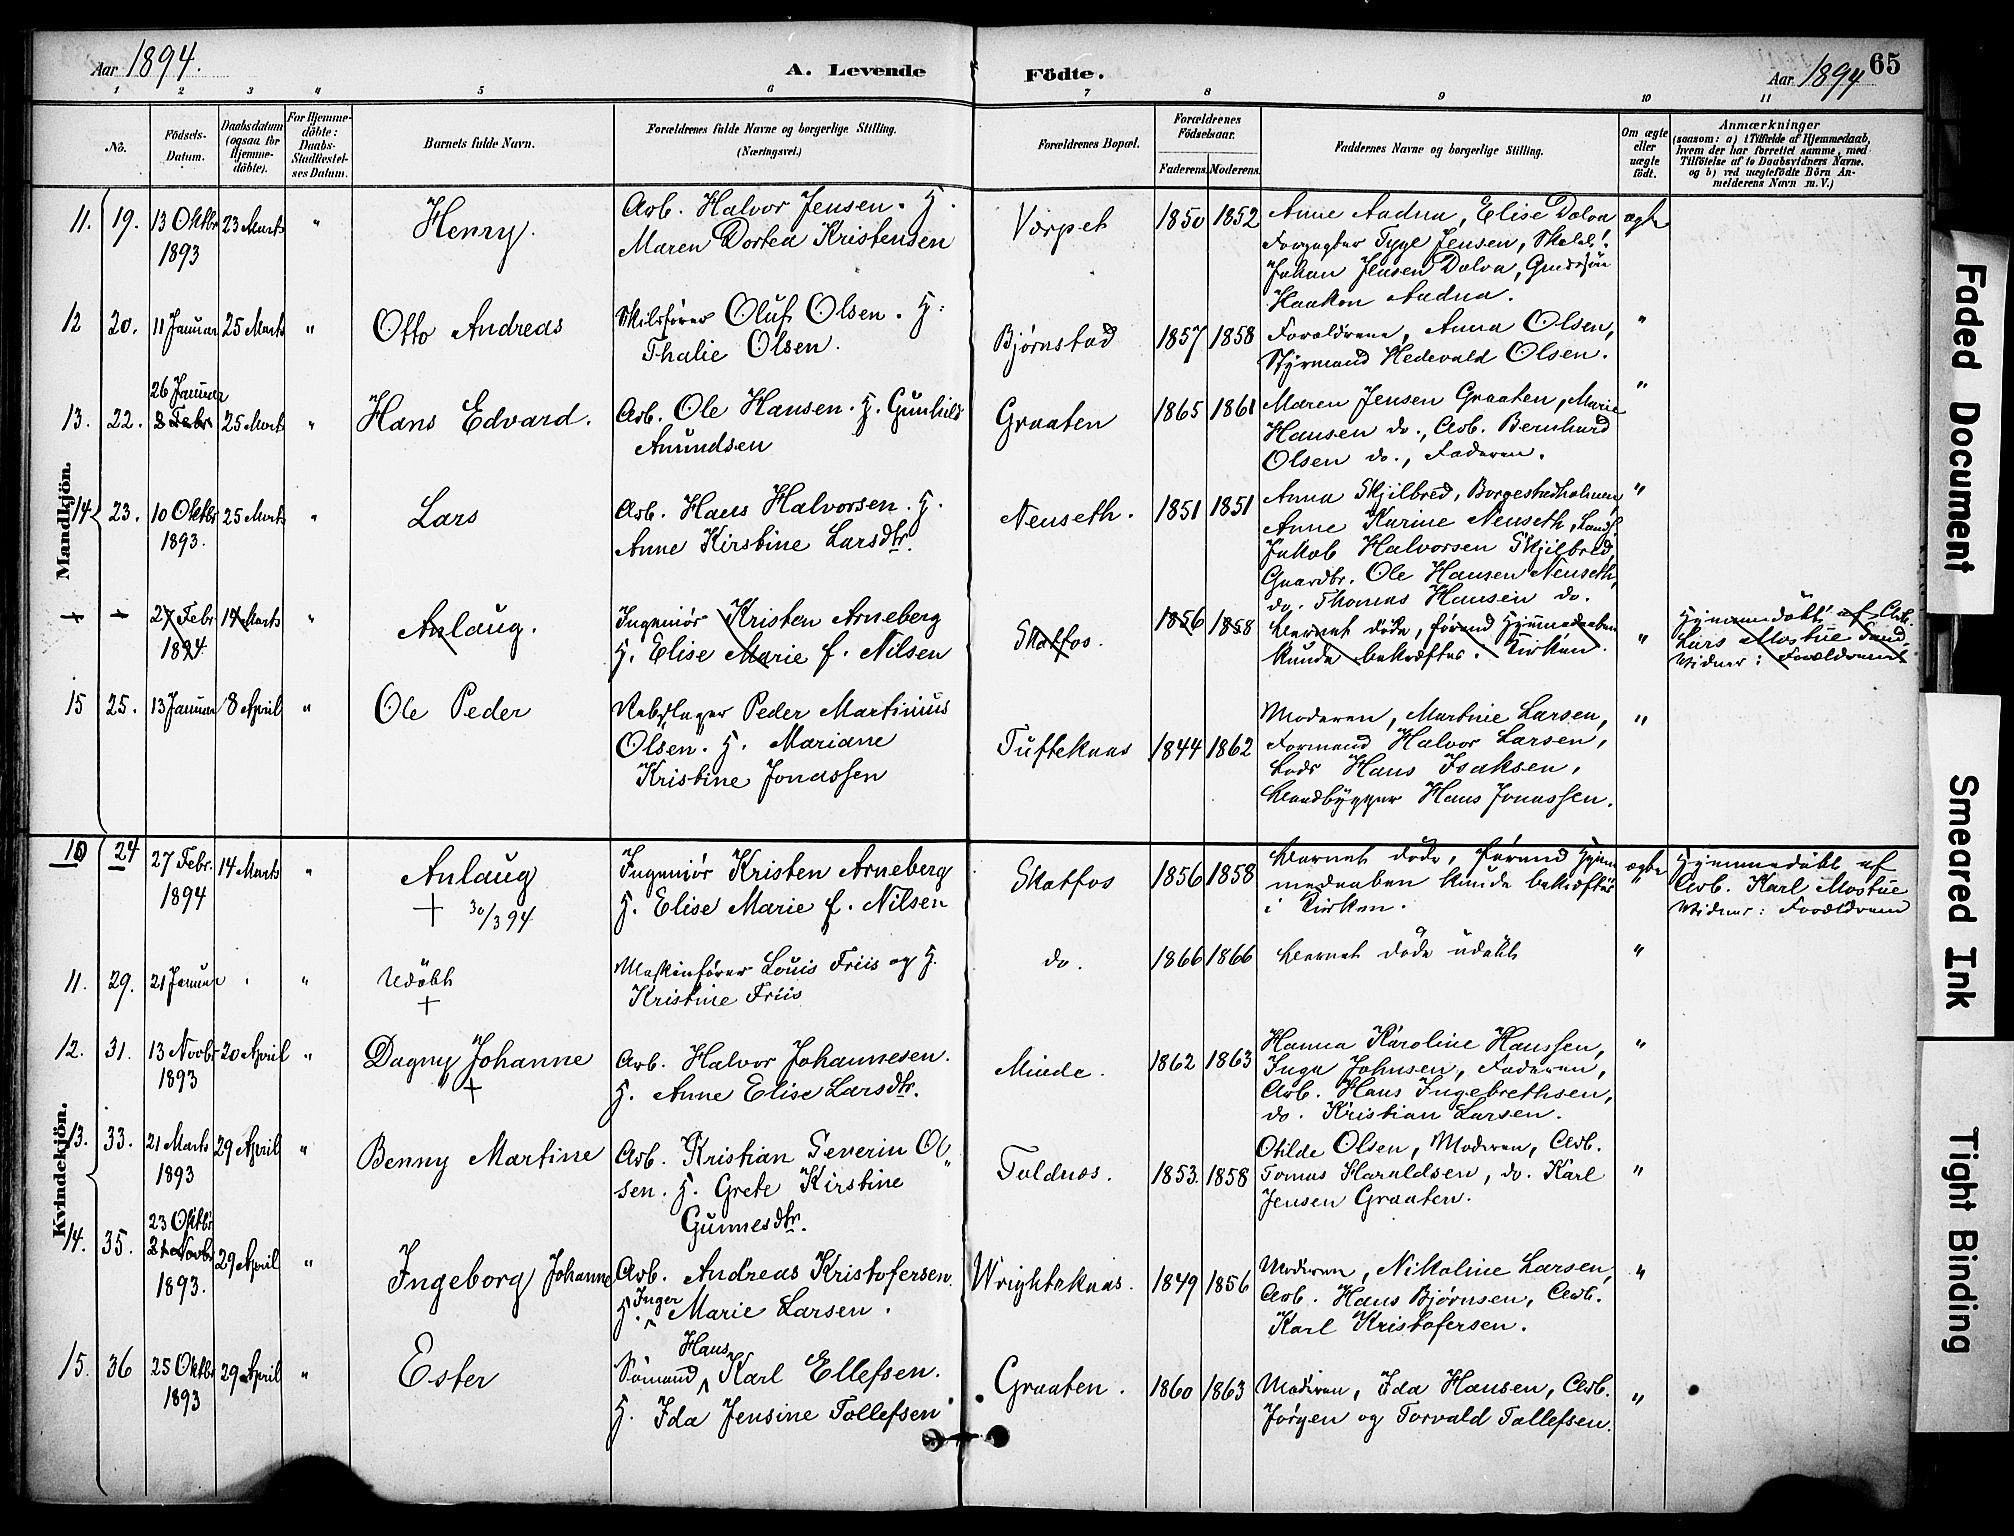 Aar 1894.
A. Levende
Födte.
Aar 1894
65
1 2 3 4 5 6 7 8 9 10 11
No.
Födsels-Datum.
Daabsdatum (ogsaa for Hjemme-döbte).
For Hjemme-döbte: Daabs-Stadfæstel-ses Datum.
Barnets fulde Navn.
Forældrenes fulde Navne og borgerlige Stilling.
(Næringsvei.)
Forældrenes Bopæl.
Forældrenes Födselsaar.
Faderens. Moderens.
Faddernes Navne og borgerlige Stilling.
Om ægte eller uægte födt.
Anmærkninger
(saasom: a) i Tilfælde af Hjemmedaab,
hvem der har forrettet samme, med
Tilföielse af to Daabsvidners Navne.
og b) ved uægtefödte Börn An-
melderens Navn m. V.)
Mandkjön.
11. 19. 13 Oktbr 1893 23 Marts " Henry.
Arb. Halvor Jensen. H.
Maren Dortea Kristensen
Værpet 1850 1852
Anne Aadna, Elise Dolva
Forpagter Tyge Jensen,
Johan Jensen Dolva,
Haakon Aadna.
ægte
12 20. 11 Januar 25 Marts " Otto Andreas
Oluf Olsen. H:
Thalie Olsen.
Bjørnstad 1857 1858
Forældrene, Anna Olsen,
Styrmand Hedevald Olsen.
"
13. 22. 26 Januar 8 Febr 25 Marts " Hans Edvard.
Arb. Ole Hansen. H. Gunhild
Amundsen
Graaten 1865 1861
Maren Jensen Graaten, Marie
Hansen do., Arb. Bernhard
Olsen do., Faderen.
"
14 23. 10 Oktbr 1893. 25 Marts " Lars
Arb. Hans Halvorsen. H.
Anne Kirstine Larsdtr.
Nenseth. 1851 1851
Anna Skjilbred, Borgestadholmen,
Anne Karine Nenseth,
Jakob Halvorsen Skjilbred,
Gaardbr. Ole Hansen Nenseth,
do. Thomas Hansen do.
"
27 Febr 1894 14 Marts " Anlaug.
Ingeniør Kristen Arneberg
H. Elise Marie f. Nilsen
Skotfos. 1856 1858
Barnet døde, førend Hjemmedaaben
kunde bekræftes i Kirken.
"
Hjemmedöbt af Arb.
Lars Mostue
Vidner: Forældrene
15 25. 13 Januar 8 April " Ole Peder
Rebslager Peder Martinius
Olsen. H. Mariane
Kristine Jonassen
Tufteknas 1844 1862
Moderen, Martine Larsen,
Formand Halvor Larsen,
Lods Hans Isaksen,
Hans Jonassen.
"
Kvindekjön.
10 24 27 Febr. 1894 14 Marts " Anlaug
+ 30/3 94
Ingeniør Kristen Arneberg
H. Elise Marie f. Nilsen
Skotfos 1856 1858
Barnet døde, førend Hjem
medaaben kunde bekræftes
i Kirken.
ægte
"
Hjemmedöbt af
Arb. Karl Mostue
Vidner: Forældrene
11. 29. 21 Januar " " Udöbt
+
Maskinfører Louis Friis og H.
Kristine Friis
do. 1866 1866
Barnet døde udøbt
"
12. 31. 13 Novbr 1893 20 April " Dagny Johanne
+
Arb. Halvor Johannesen.
H. Anne Elise Larsdtr.
Minde. 1862 1863
Hanna Karoline Hanssen,
Inga Johnsen, Faderen,
Arb. Hans Ingebrethsen,
do. Kristian Larsen.
"
13. 33. 21 Marts 1893 29 April " Benny Martine
Arb. Kristian Severin Ol
sen. H. Grete Kirstine
Gunnesdtr.
Foldnes. 1853. 1858
Othilde Olsen, Moderen, Arb.
Tomas Haraldsen, do. Karl
Jensen Graaten.
"
14. 35. 23 Oktbr 21 Novbr 1893. 29 April " Ingeborg Johanne
Arb. Andreas Kristofersen.
H. Inger Marie Larsen.
Wrightsknas. 1849 1856
Moderen, Nikoline Larsen,
Arb. Hans Bjørnsen, Arb.
Karl Kristofersen.
"
15. 36 25 Oktbr 1893 29 April " Ester
Sømand Hans Karl Ellefsen.
H. Ida Jensine Tollefsen
Graaten. 1860 1863
Moderen, Ida Hansen, Arb.
Jørgen og Torvald Tollefsen.
"
Faded Document
Smeared Ink
Tight Binding